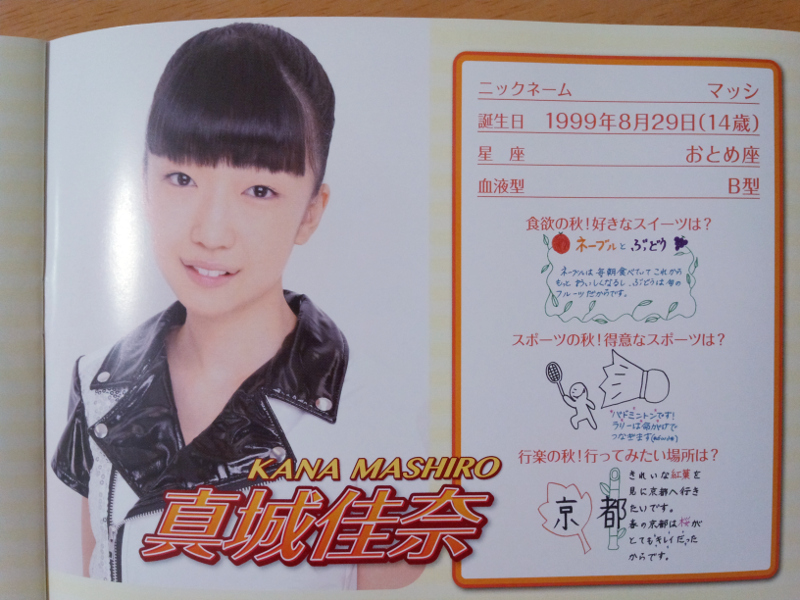 KANA MASHIRO
真城佳奈
ニックネーム マッシ
誕生日 1999年8月29日(14歳)
星 座 おとめ座
血液型 B型
食欲の秋!好きなスイーツは?
ネーブルとぶどう
ネーブルは毎朝食べていてこれから
もっとおいしくなるし、ぶどうは旬の
フルーツだからです。
スポーツの秋!得意なスポーツは?
バドミントンです!
ラリーは命がけで
つなぎます
行楽の秋!行ってみたい場所は?
京都
きれいな紅葉を
見に京都へ行き
たいです。
春の京都は桜が
とてもキレイだった
からです。